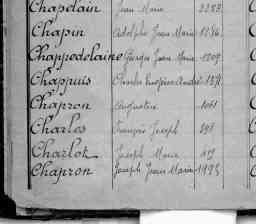 Chapelain Jean Marie 2283
Chapin Adolphe Jean Marie 1246
Chappedelaine Georges Jean Marie 1209
Chappuis Charles Eugène André 1371
Chapron Augustine 1061
Charles François Joseph 291
Charlot Joseph Marie 419
Chapron Joseph Jean Marie 1993